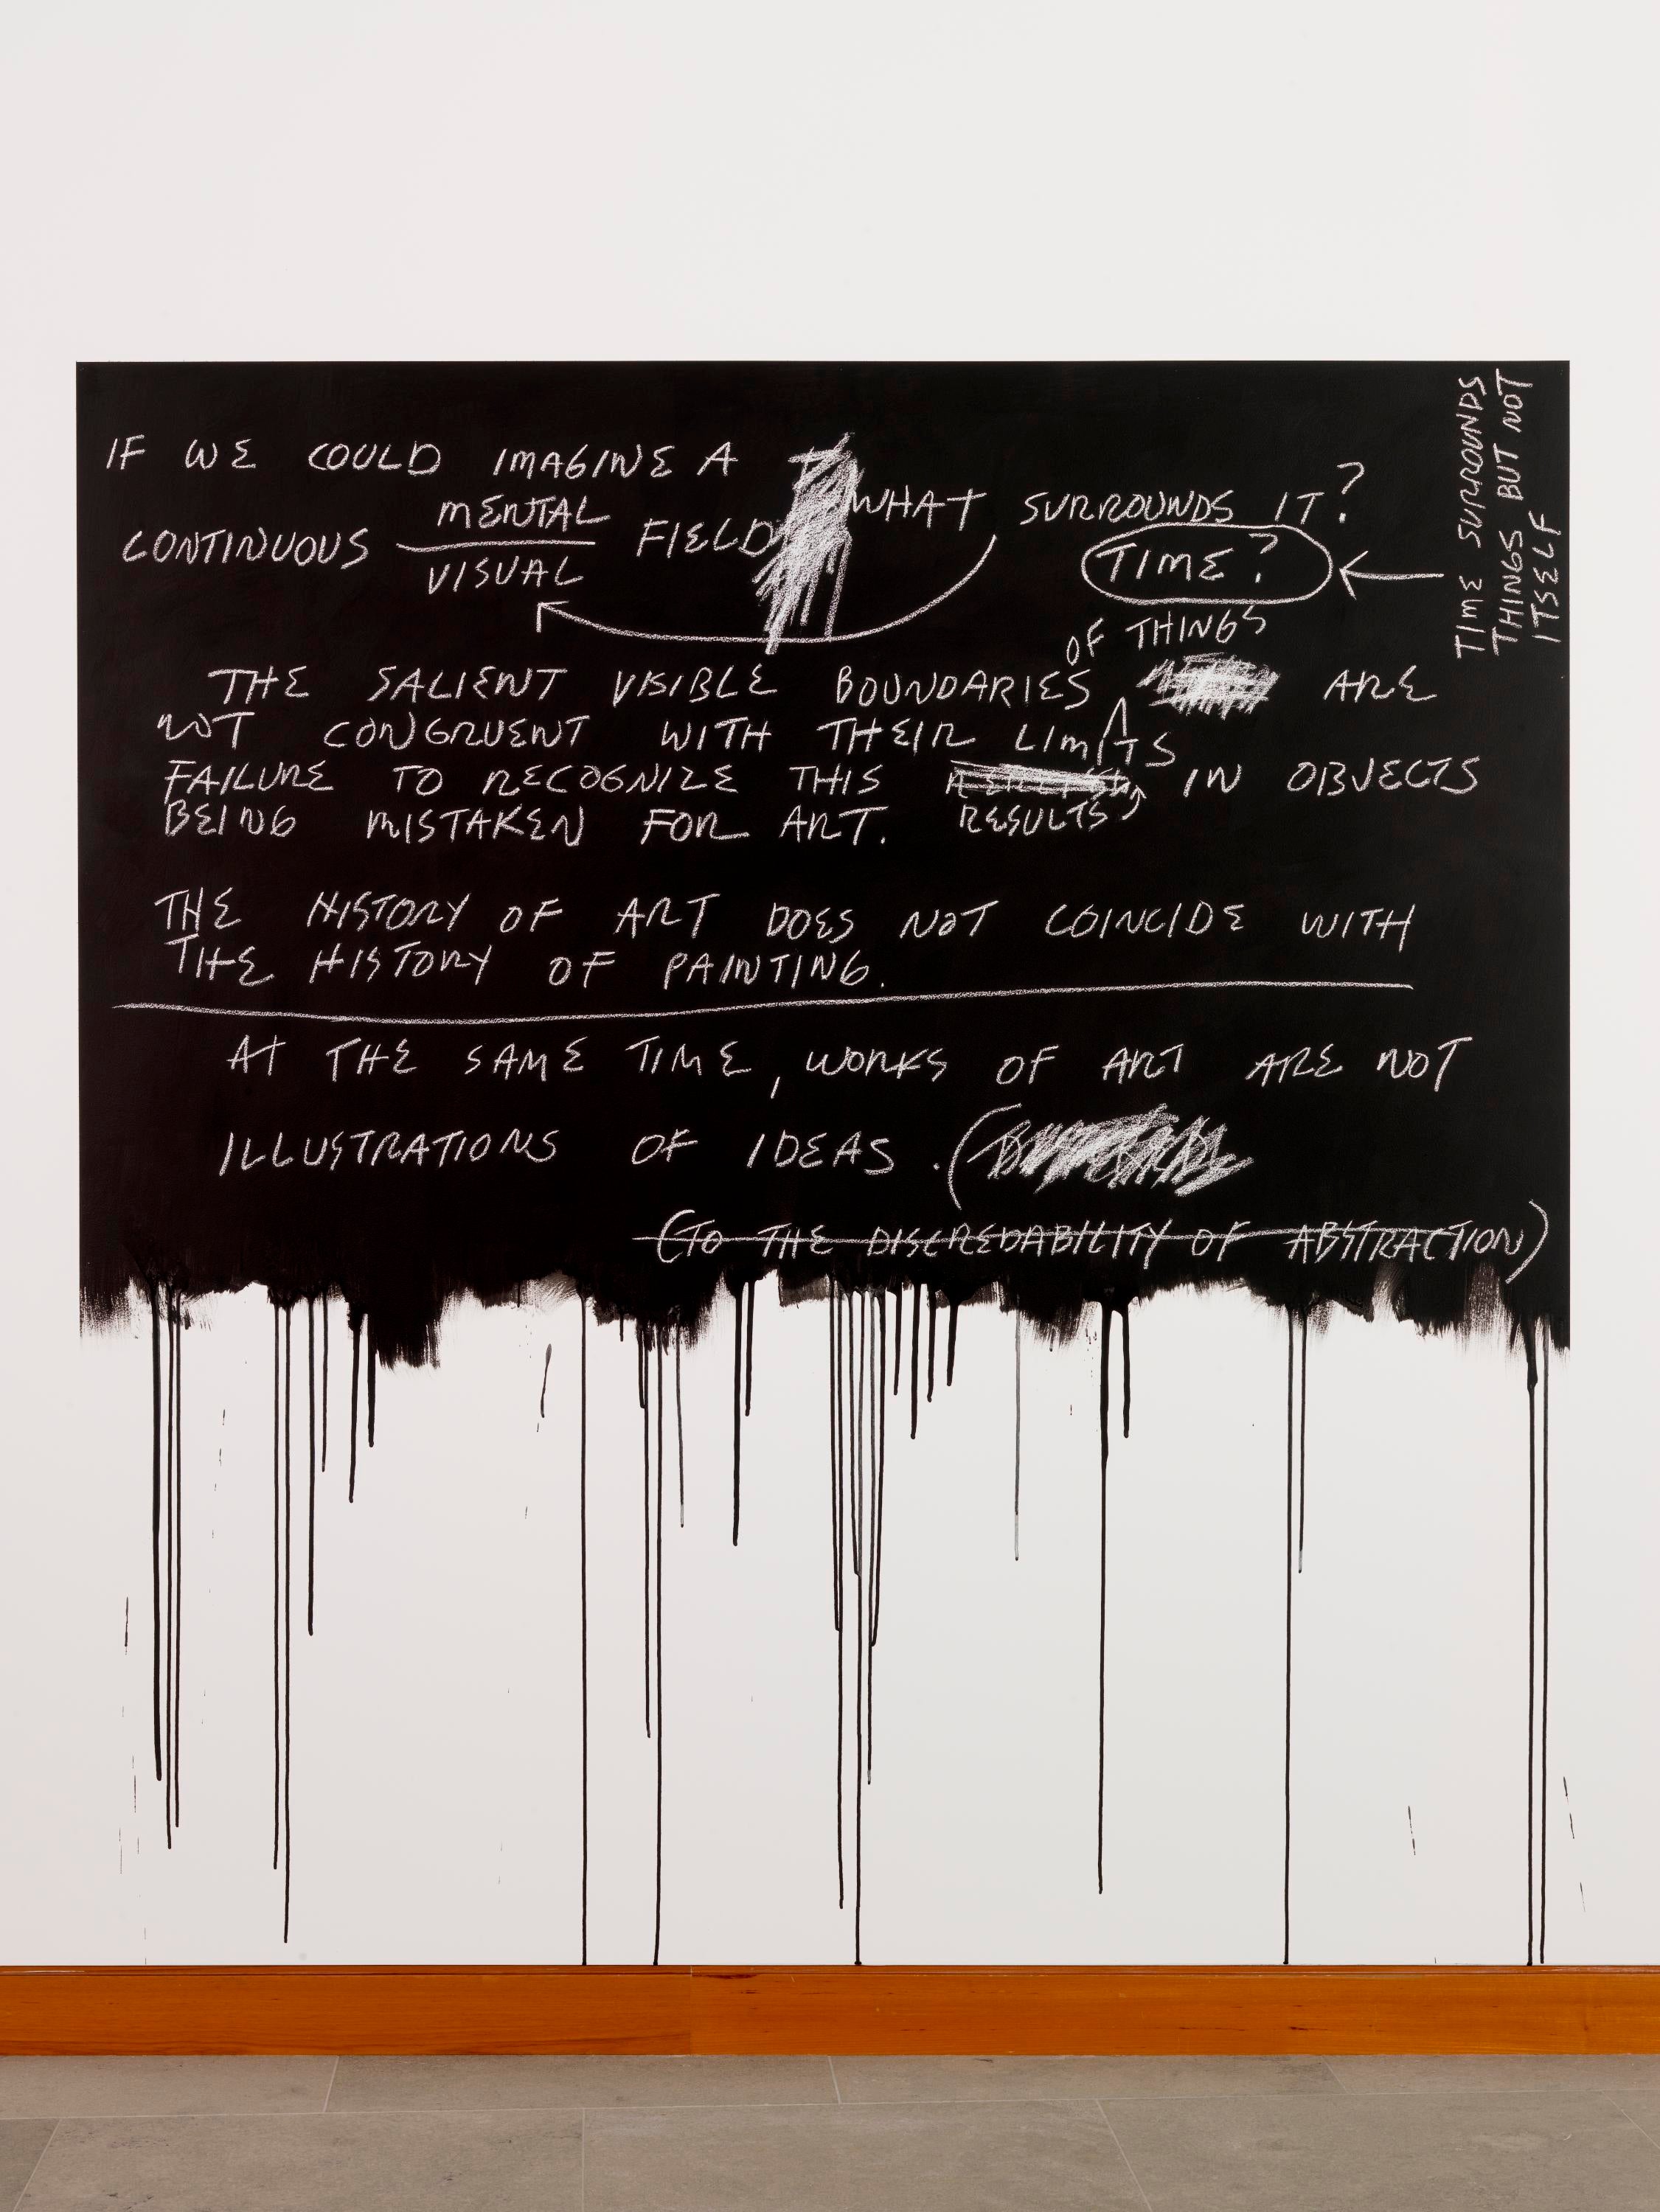 IF WE COULD IMAGINE A
MENTAL
CONTINUOUS FIELD WHAT SURROUNDS IT?
VISUAL
TIME?
TIME SURROUNDS
THINGS BUT NOT
ITSELF
OF THINGS
THE SALIENT VISIBLE BOUNDARIES ARE
NOT CONGRUENT WITH THEIR LIMITS
FAILURE TO RECOGNIZE THIS IN OBJECTS
BEING MISTAKEN FOR ART. RESULTS
THE HISTORY OF ART DOES NOT COINCIDE WITH
THE HISTORY OF PAINTING.
AT THE SAME TIME, WORKS OF ART ARE NOT
ILLUSTRATIONS OF IDEAS. (
(TO THE DISCREDABILITY OF ABSTRACTION)